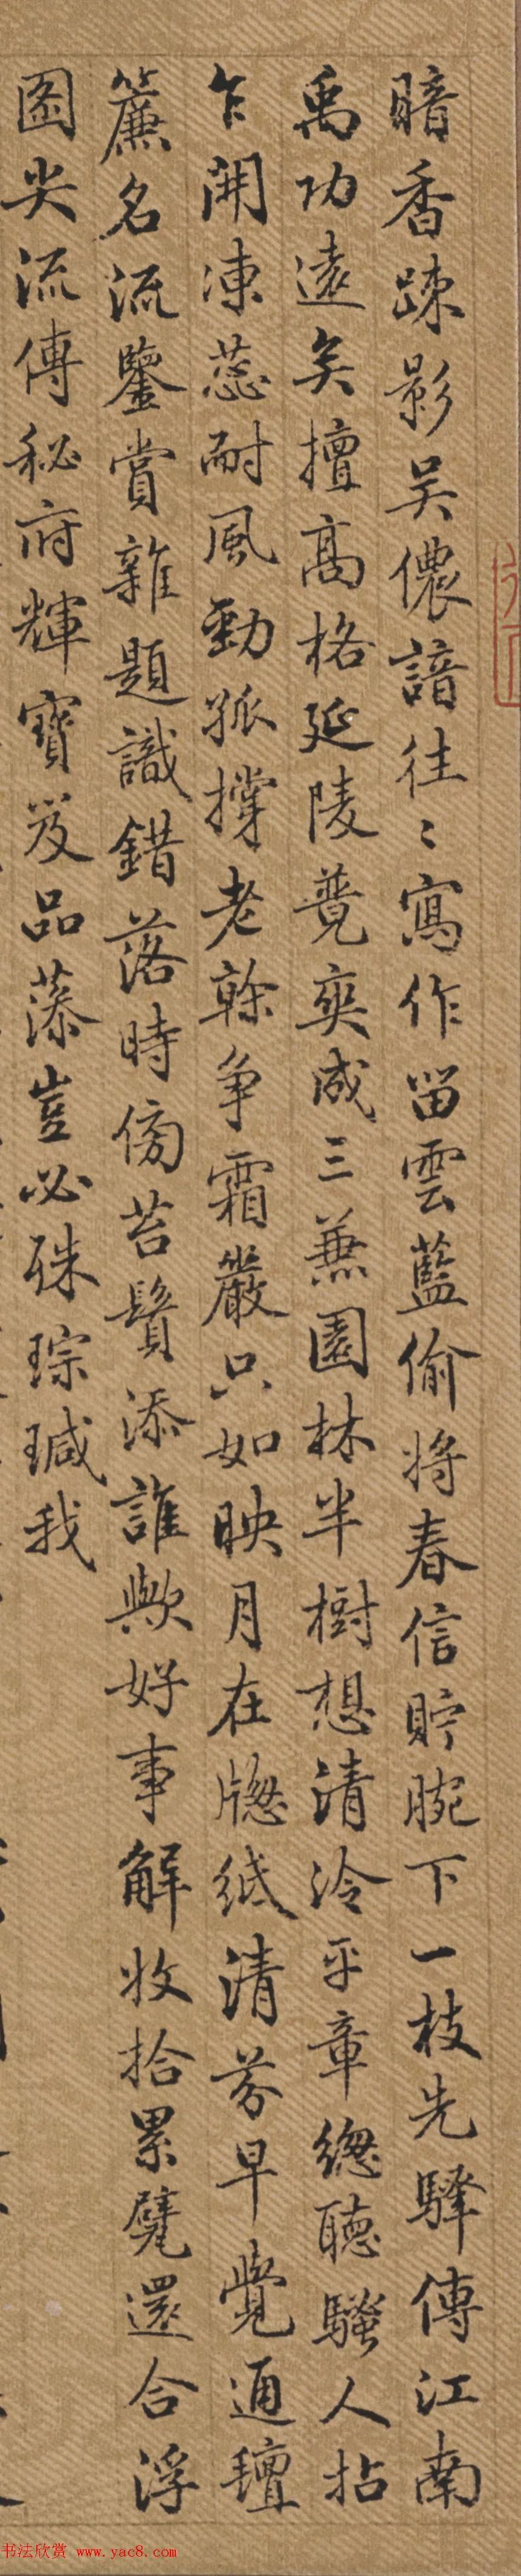 暗香疎影吴儂諳往〻寫作留雲藍偷將春信貯腕下一枝先驛傳江南
禹功遠矣擅高格延陵競爽成三兼園林半樹想清泠平章總聽騷人拈
乍開凍蕊耐風勁孤撑老榦争霜嚴只如映月在牕紙清芬早覺通
簾名流鑒賞雜題識錯落時傍苔鬚添誰歟好事解收拾累甓還合浮
圖尖流傳秘府輝寶笈品藻豈必硃琮瑊我
书法欣赏 www.yac8.com